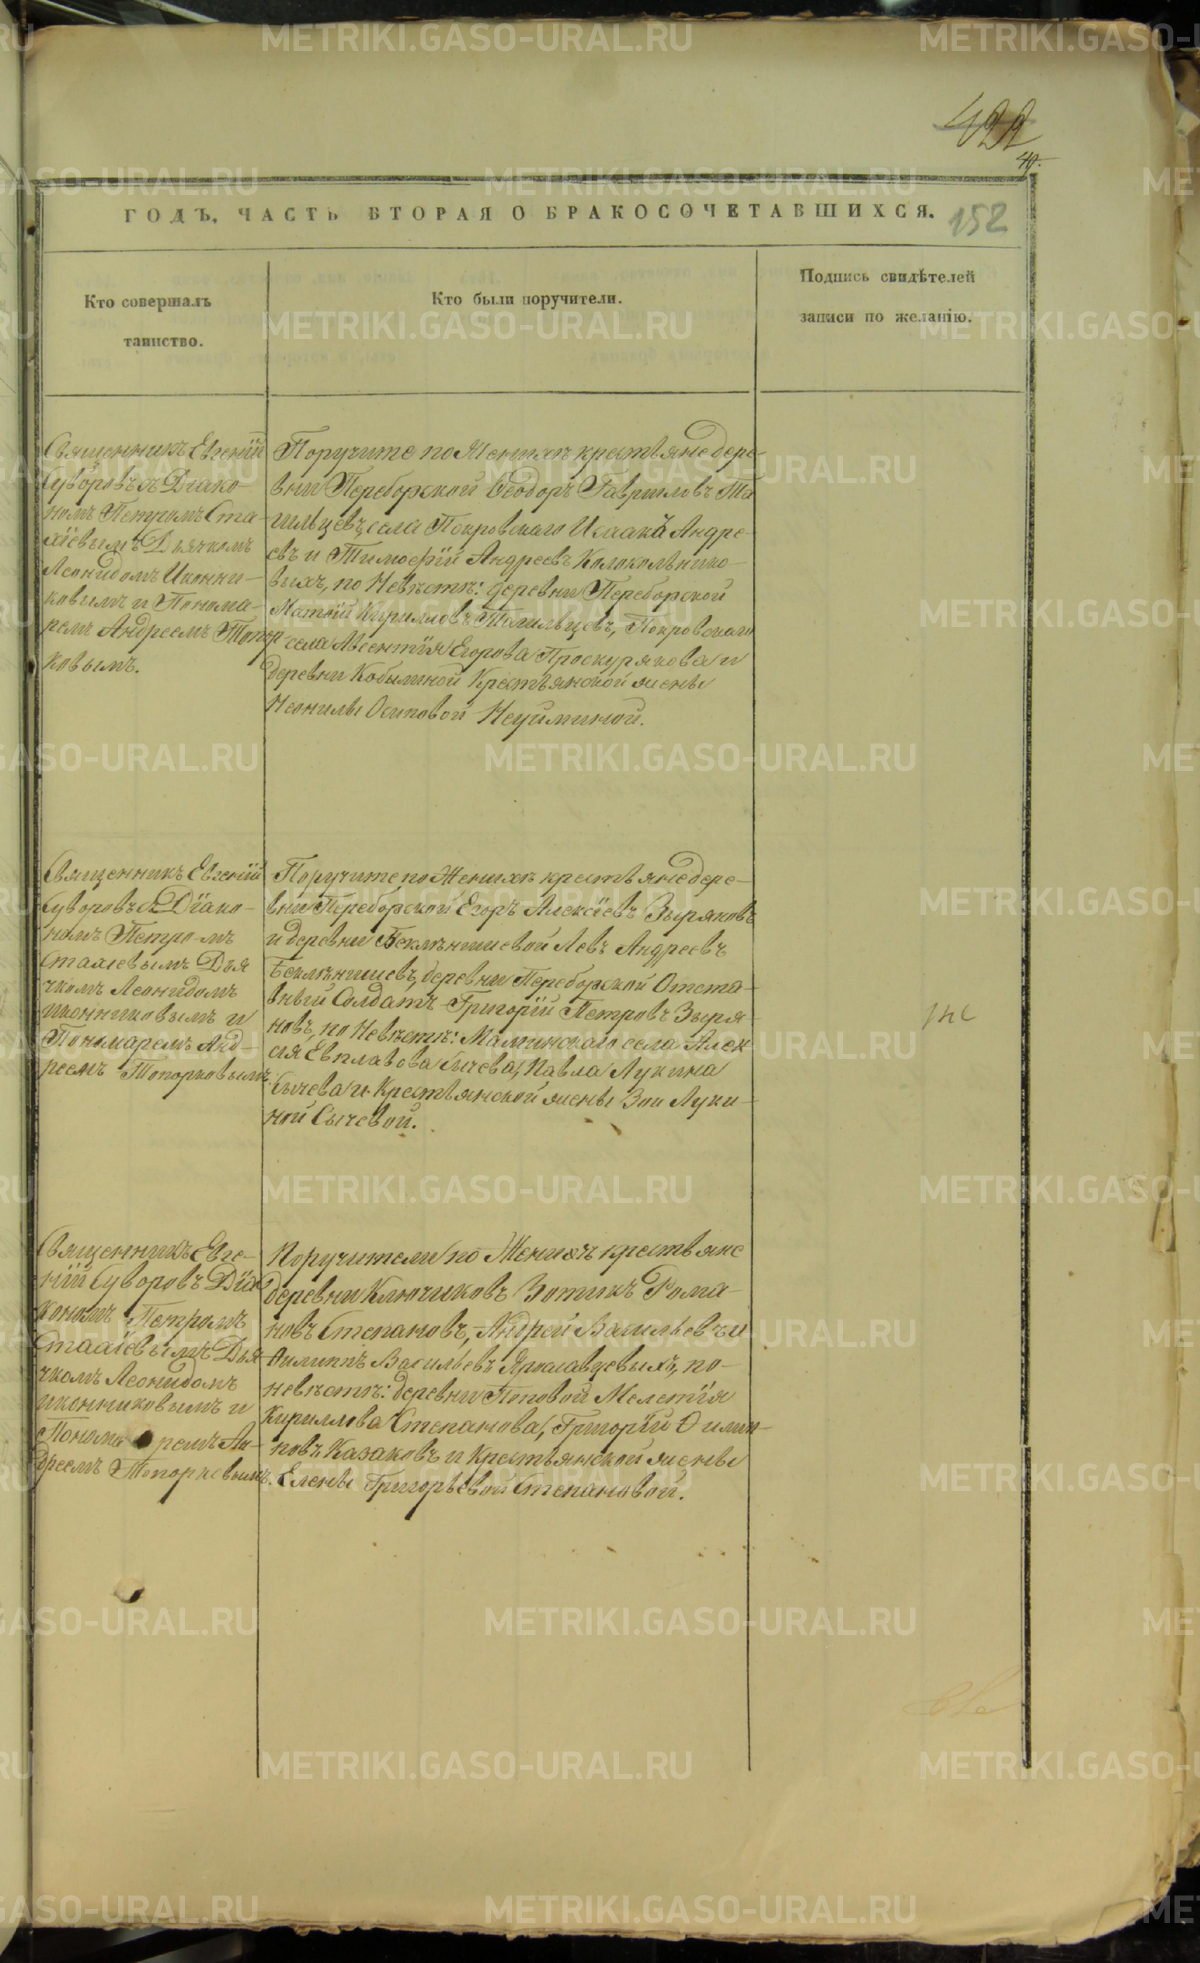 422
40.
152
ГОДЪ, ЧАСТЬ ВТОРАЯ О БРАКОСОЧЕТАВШИХСЯ.
Кто совершалъ
таинство.
Кто были поручители.
Подпись свидѣтелей
записи по желанію.
Священникъ Евгенiй
Суворовъ съ Дiако-
номъ Петромъ Ста-
хiевымъ Дьячкомъ
Леонидомъ Иконни-
ковымъ и Понома-
ремъ Андреемъ Топор
ковымъ.
Поручите по Женихѣ крестьяне дере-
вни Переборской Ѳеодоръ Гавриловъ Та
гильцевъ, села Покровскаго Исаакъ Андре-
евъ и Тимофей Андреевъ Колокольнико-
выхъ, по Невѣстѣ: деревни Переборской
Матвѣй Кирилловъ Тагильцевъ, Покровскаго
села Авсентiя Егорова Проскурякова и
деревни Кобылиной Крестьянской жены
Неонилы Осиповой Неуйминой.
Священникъ Евгенiй
Суворовъ съ Дiако-
номъ Петромъ
Стахiевымъ Дья
чкомъ Леонидомъ
иконниковымъ и
Пономаремъ Анд
реемъ Топорковымъ
Поручите по Женихѣ крестьяне дере-
вни Переборской Егоръ Алексѣевъ Зыряновъ
и деревни Беклѣнишевой Левъ Андреевъ
Беклѣнишевъ, деревни Переборской Отста-
вный Солдатъ Григорiй Петровъ Зыря-
новъ, по Невѣстѣ: Маминскаго села Алек
сѣя Евплавова Сычева, Павла Лукина
Сычева и Крестьянской жены Зои Луки-
ной Сычевой.
Священникъ Евге-
нiй Суворовъ Дiа
кономъ Петромъ
Стахiевымъ Дья
чкомъ Леонидомъ
иконниковымъ и
Пономаремъ Ан-
дреемъ Топорковымъ.
Поручители по Женихѣ крестьяне
деревни Ключиковъ Зотикъ Рома-
новъ Степановъ, Андрей Васильевъ и
Филиппъ Васильевъ Ярославцевыхъ, по
невѣстѣ: деревни Поповой Мелетiя
Кириллова Степанова, Григорiй Филип-
повъ Казаковъ и Крестьянской жены
Елены Григорьевой Степановой.
METRIKI.GASO-URAL.RU